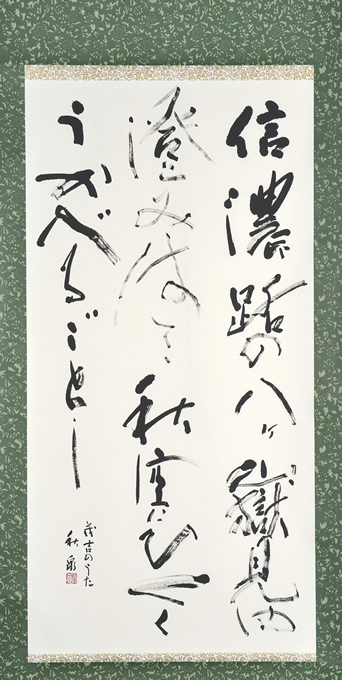 信濃路の八ヶ嶽見ゆ
澄みはてて秋空にひくく
うかべるごとし
茂吉のうた
秋